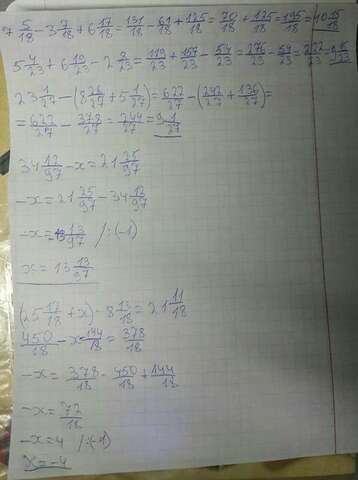 7 5/18 - 3 7/18 + 6 17/18 = 131/18 - 61/18 + 125/18 = 70/18 + 125/18 = 195/18 = 10 15/18
5 4/23 + 6 19/23 - 2 8/23 = 119/23 + 157/23 - 54/23 = 276/23 - 54/23 = 222/23 = 9 15/23
23 1/27 - (8 26/27 + 5 1/27) = 622/27 - (242/27 + 136/27) =
= 622/27 - 378/27 = 244/27 = 9 1/27
34 12/97 - x = 21 25/97
-x = 21 25/97 - 34 12/97
-x = -13 13/97 /:(-1)
x = 13 13/97
(25 17/18 + x) - 8 13/18 = 21 11/18
450/18 - x 144/18 = 378/18
-x = 378/18 - 450/18 + 144/18
-x = 72/18
-x = 4 /:(-1)
x = -4